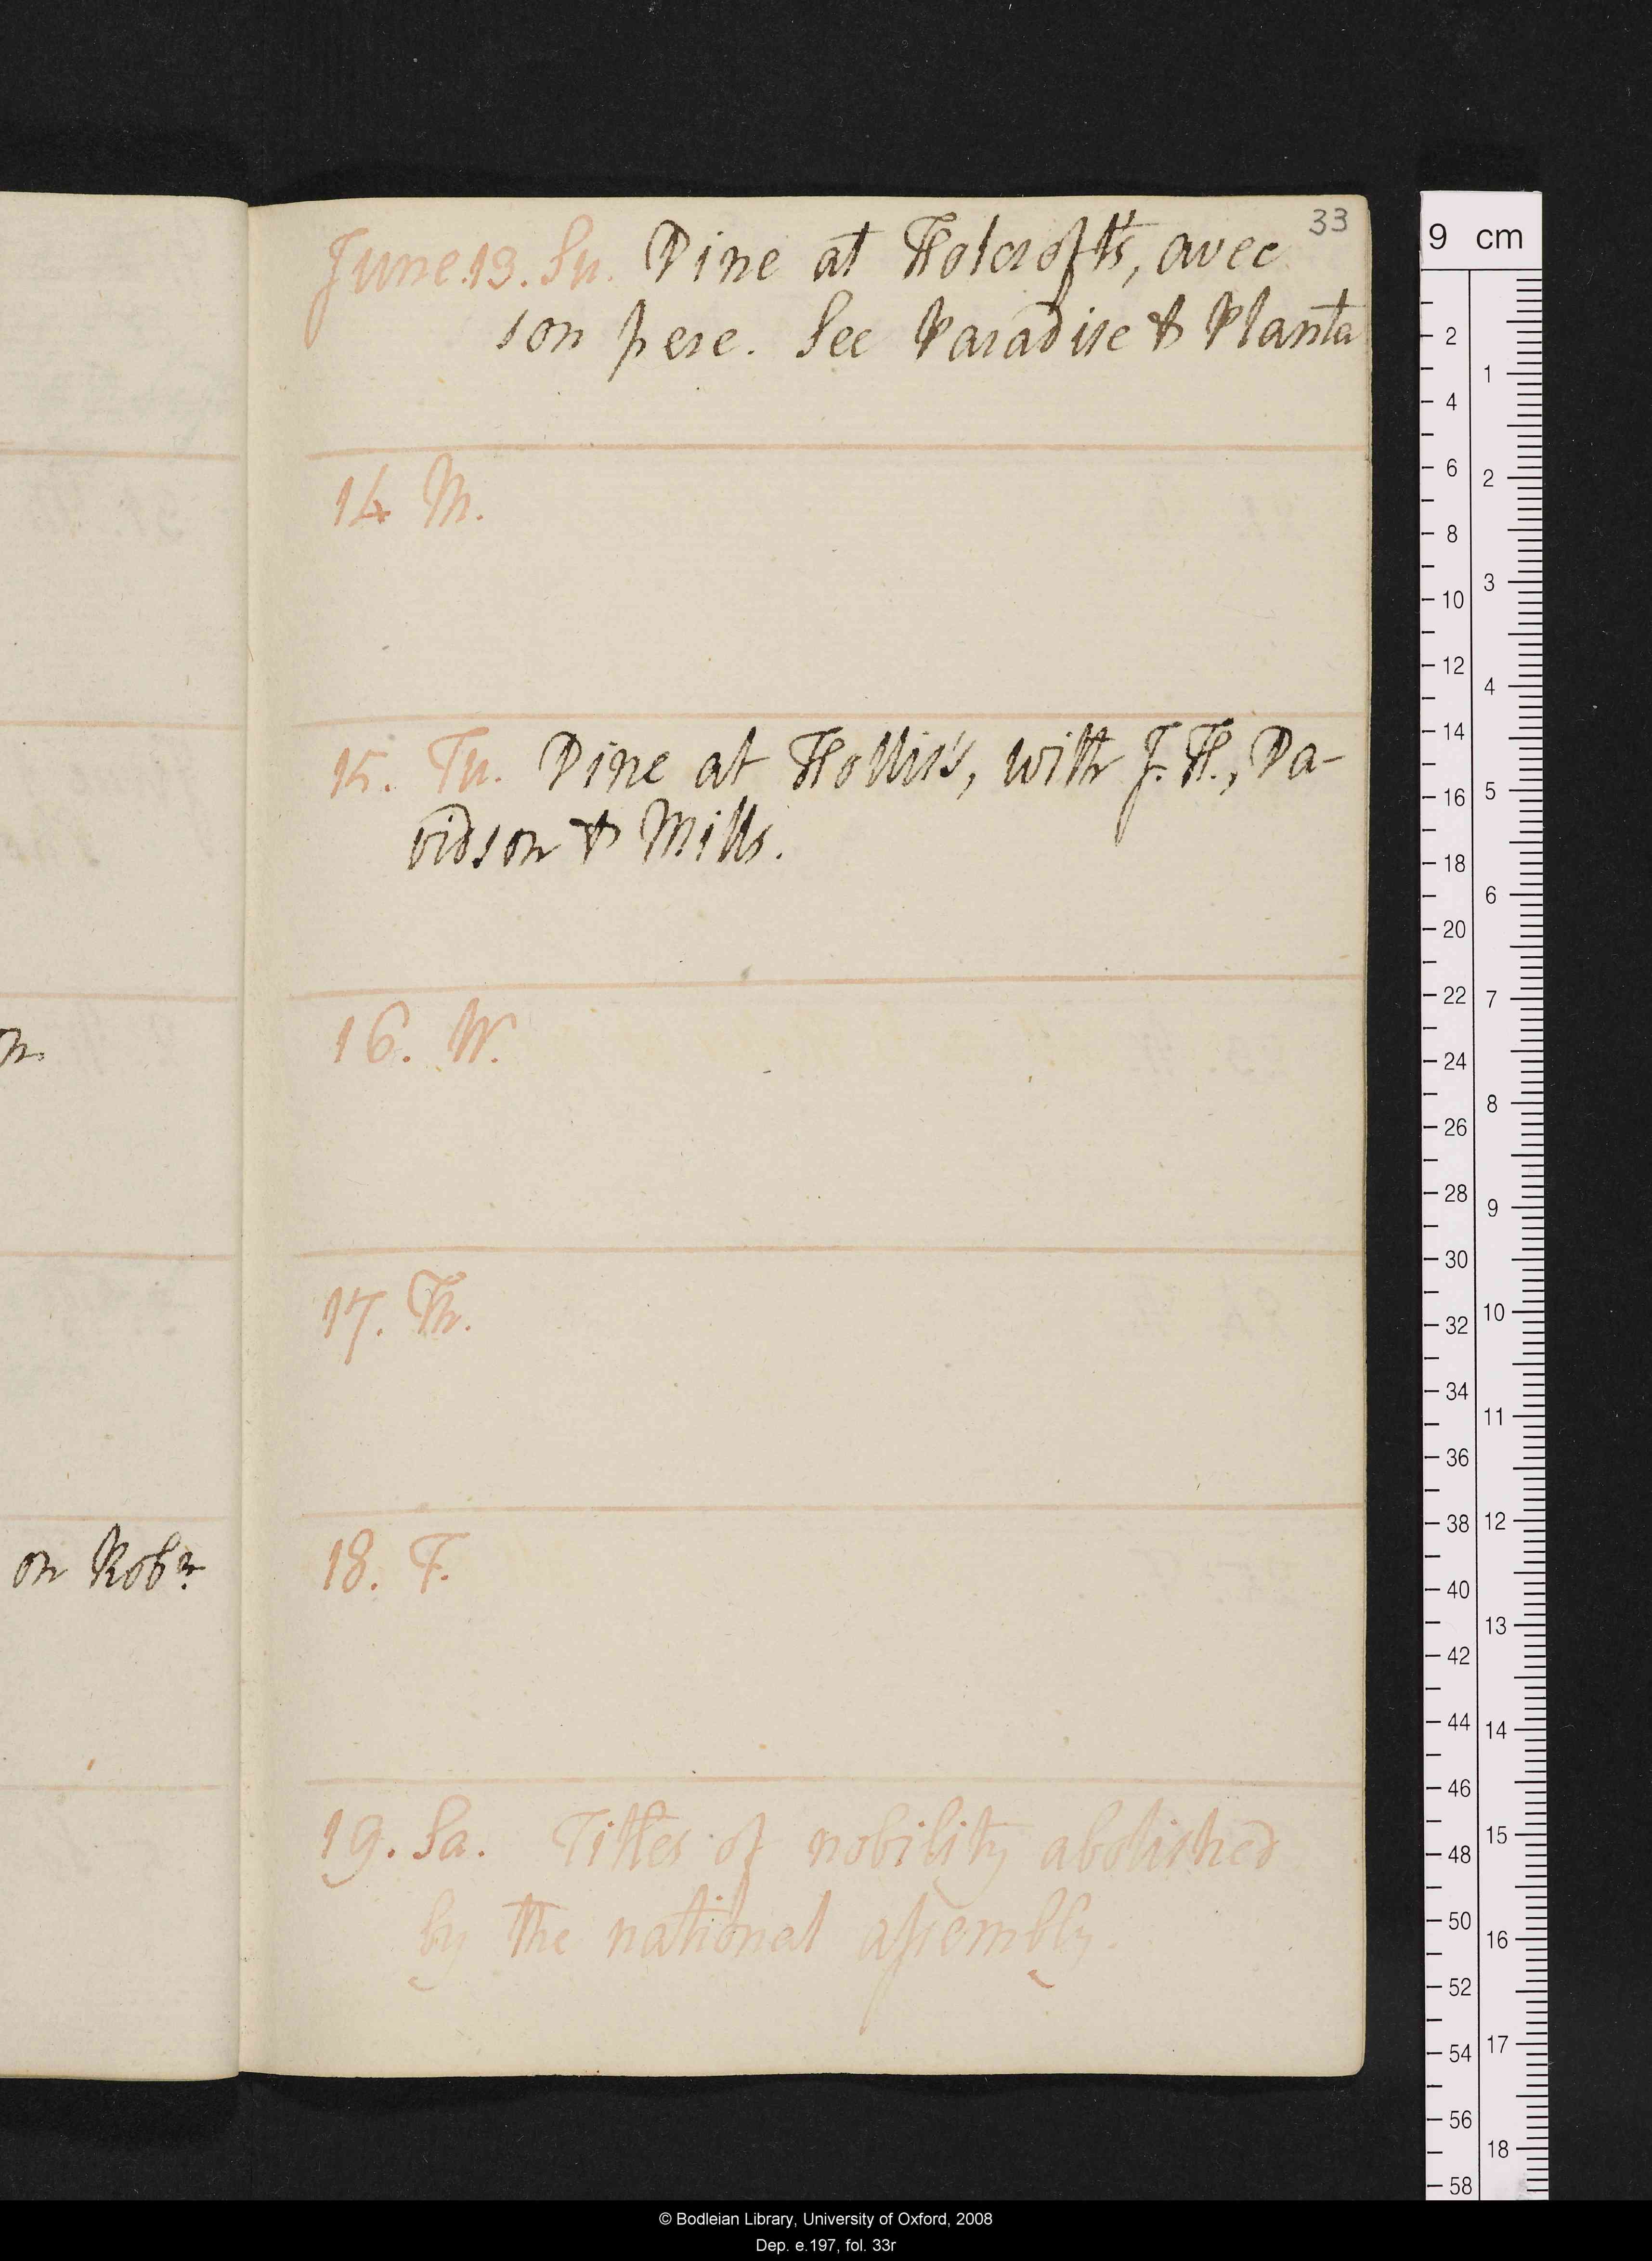 33
June.13. Su. Dine at Holcroft's, avec
son pere. See Paradise & Planta
14 M.
15. Tu. Dine at Hollis's, with J. H., Da-
vidson & Mills.
16. W.
17. Th.
18. F.
19. Sa. Titles of nobility abolished
by the national assembly.
n.
on Robn.
9 cm
2
4
6
8
10
12
14
16
18
20
22
24
26
28
30
32
34
36
38
40
42
44
46
48
50
52
54
56
58
1
2
3
4
5
6
7
8
9
10
11
12
13
14
15
16
17
18
© Bodleian Library, University of Oxford, 2008
Dep. e.197, fol. 33r